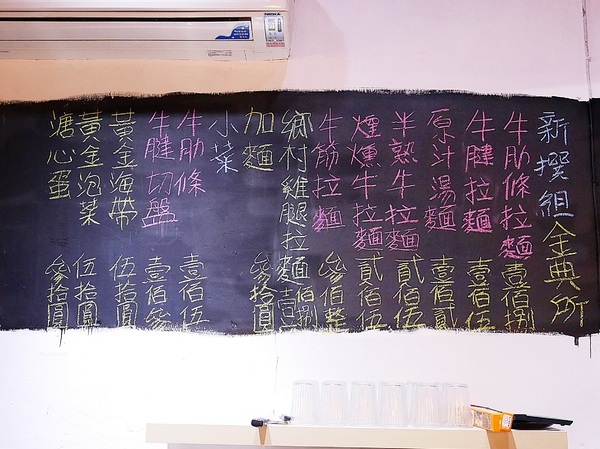 新撰組金典所
牛肋條拉麵 壹佰捌
牛腱拉麵 壹佰伍
原汁湯麵 壹佰貳
半熟牛拉麵 貳佰伍
煙燻牛拉麵 貳佰伍
牛筋拉麵 參佰整
鄉村雞腿拉麵 壹佰捌
加麵 參拾圓
小菜
牛肋條 壹佰伍
牛腱切盤 壹佰參
黃金海帶 伍拾圓
黃金泡菜 伍拾圓
溏心蛋 參拾圓